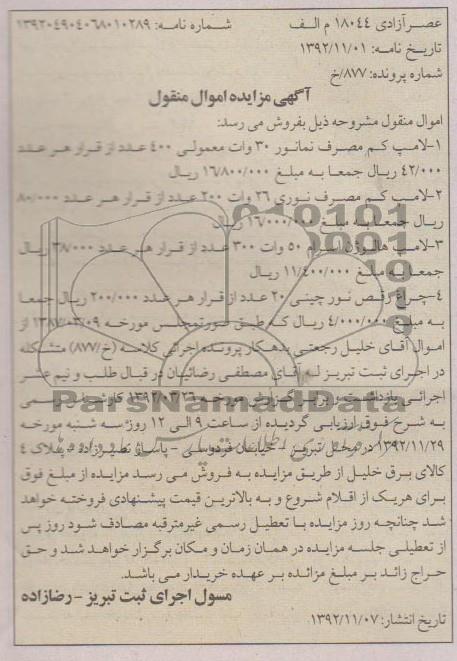 عصرآزادی ۱۸۰۴۴ م الف
شماره نامه: ۱۳۹۲۰۴۹۰۴۰۶۸۰۱۰۲۸۹
تاریخ نامه: ۱۳۹۲/۱۱/۰۱
شماره پرونده: ۸۷۷/خ
آگهی مزایده اموال منقول
اموال منقول مشروحه ذیل بفروش می رسد:
۱-لامپ کم مصرف نمانور ۳۰ وات معمولی ۴۰۰ عدد از قرار هر عدد
۴۲/۰۰۰ ریال جمعا به مبلغ ۱۶/۸۰۰/۰۰۰ ریال
۲-لامپ کم مصرف نوری ۲۶ وات ۲۰۰ عدد از قرار هر عدد ۸۰/۰۰۰
ریال جمعا به مبلغ ۱۶/۰۰۰/۰۰۰ ریال
۳-لامپ هالوژن اسرام ۵۰ وات ۳۰۰ عدد از قرار هر عدد ۳۸/۰۰۰ ریال
جمعا به مبلغ ۱۱/۴۰۰/۰۰۰ ریال
۴-چراغ رقص نور چینی ۲۰ عدد از قرار هر عدد ۲۰۰/۰۰۰ ریال جمعا
به مبلغ ۴/۰۰۰/۰۰۰ ریال که طبق صورتمجلس مورخه ۱۳۸۷/۰۳/۰۹ از
اموال آقای خلیل رجعتی بدهکار پرونده اجرائی کلاسه (خ/۸۷۷) متشکله
در اجرای ثبت تبریز له آقای مصطفی رضائیان در قبال طلب و نیم عشر
اجرائی بازداشت و برابر گزارش مورخه ۱۳۹۲/۰۳/۲۶ کارشناس رسمی
به شرح فوق ارزیابی گردیده از ساعت ۹ الی ۱۲ روز سه شنبه مورخه
۱۳۹۲/۱۱/۲۹ در محل تبریز - خیابان فردوسی - پاساژ پلاک ۴
کالای برق خلیل از طریق مزایده به فروش می رسد مزایده از مبلغ فوق
برای هریک از اقلام شروع و به بالاترین قیمت پیشنهادی فروخته خواهد
شد چنانچه روز مزایده با تعطیل رسمی غیرمترقبه مصادف شود روز پس
از تعطیلی جلسه مزایده در همان زمان و مکان برگزار خواهد شد و حق
حراج زائد بر مبلغ مزائده بر عهده خریدار می باشد.
مسول اجرای ثبت تبریز - رضازاده
تاریخ انتشار: ۱۳۹۲/۱۱/۰۷
ParsNamadData